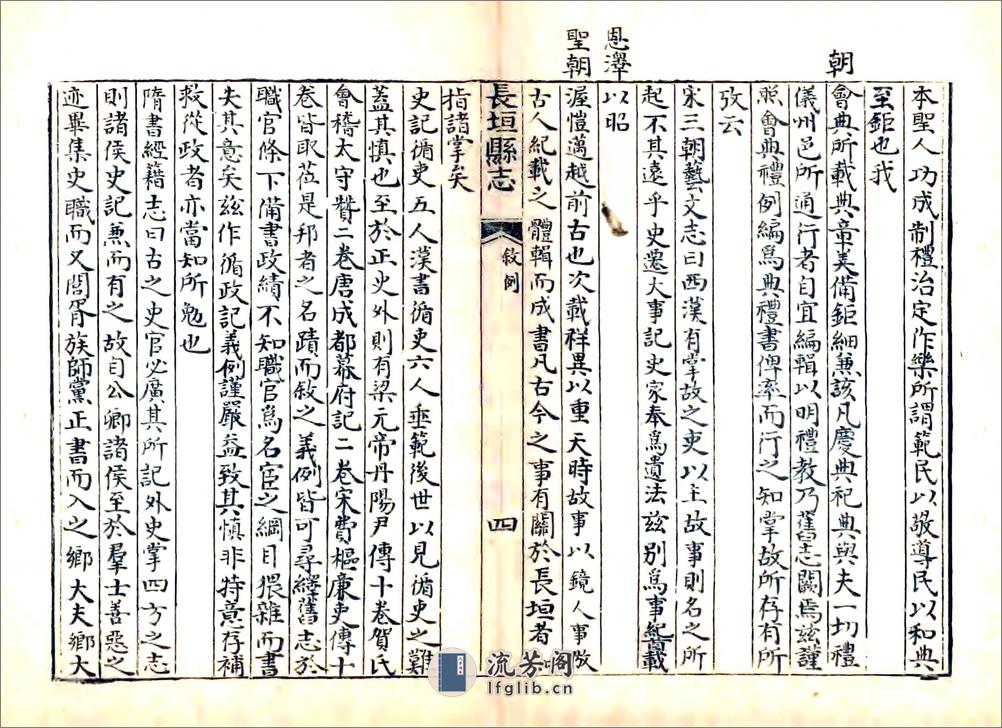 本聖人功成制禮治定作樂所謂範民以敬導民以和典
至鉅也我
朝
會典所載典章美備鉅細兼該凡慶典祀典與夫一切禮
儀州邑所通行者自宜編輯以明禮教乃舊志闕焉茲謹
照會典禮例編爲典禮書俾率而行之知掌故所存有所
攷云
宋三朝藝文志曰西漢有掌故之吏以主故事則名之所
起不其遠乎史遷大事記史家奉爲遺法茲别爲事紀首載
以昭
恩澤
聖朝
渥愷邁越前古也次載祥異以重天時故事以鏡人事倣
古人紀載之體輯而成書凡古今之事有關於長垣者
長垣縣志
敘例
四
指諸掌矣
史記循吏五人漢書循吏六人垂範後世以見循吏之難
蓋其慎也至於正史外則有梁元帝丹陽尹傳十卷賀氏
會稽太守贊二卷唐成都幕府記二卷宋費樞廉吏傳十
卷皆取莅是邦者之名蹟而敘之義例皆可尋繹舊志於
職官條下備書政績不知職官爲名宦之綱目猥雜而書
失其意矣茲作循政記義例謹嚴益致其慎非特意存補
救從政者亦當知所勉也
隋書經籍志曰古之史官必廣其所記外史掌四方之志
則諸侯史記兼而有之故自公卿諸侯至於羣士善惡之
迹畢集史職而又閭胥族師黨正書而入之鄉大夫鄉大
流芳阁
lfglib.cn